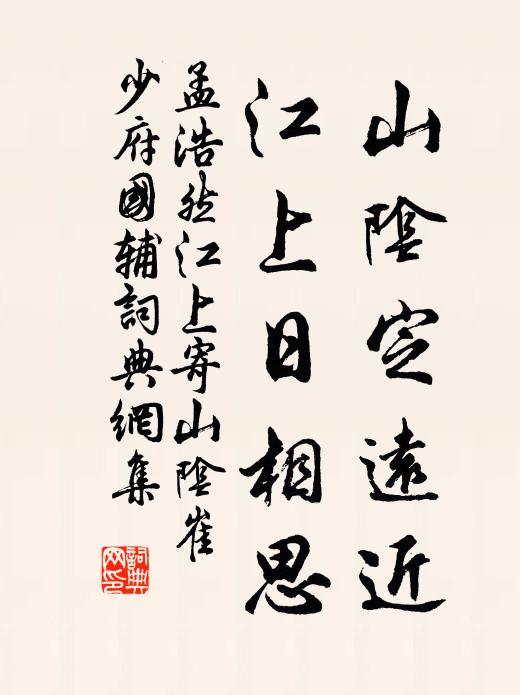 山陰定遠近
江上日相思
孟浩然江上寄山陰崔
少府國輔詞典網集
詞典
网印